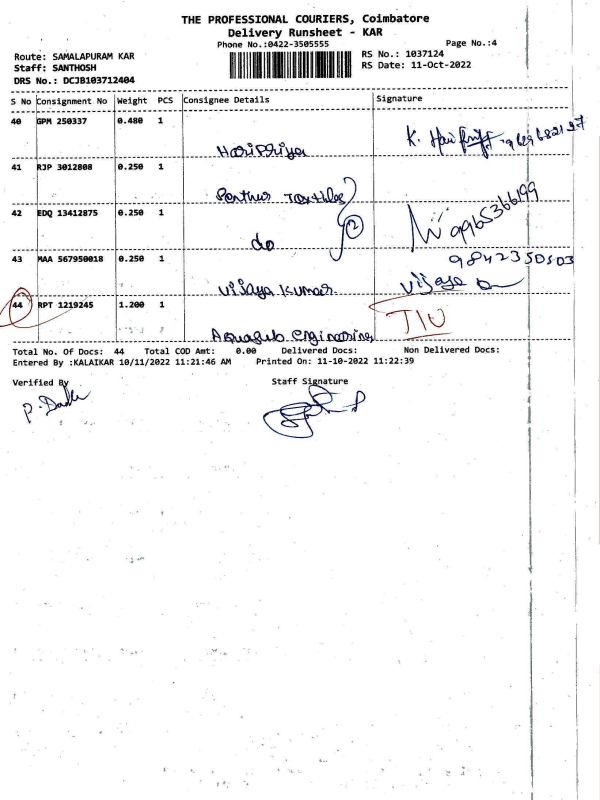 THE PROFESSIONAL COURIERS, Coimbatore
Delivery Runsheet - KAR
Phone No.:0422-3505555
Page No.:4
Route: SAMALAPURAM KAR
RS No.: 1037124
Staff: SANTHOSH
RS Date: 11-Oct-2022
DRS No.: DCJB103712404
S No Consignment No Weight PCS Consignee Details Signature
40 GPM 250337 0.480 1
Haripriya
41 RJP 3012808 0.250 1
42 EDQ 13412875 0.250 1
do 2 9965366199
43 MAA 567950018 0.250 1 9842350503
Vijaya Kumar Vijaya
44 RPT 1219245 1.200 1
Aquasub Engineering
Total No. Of Docs: 44 Total COD Amt: 0.00 Delivered Docs: Non Delivered Docs:
Entered By :KALAIKAR 10/11/2022 11:21:46 AM Printed On: 11-10-2022 11:22:39
Verified By Staff Signature